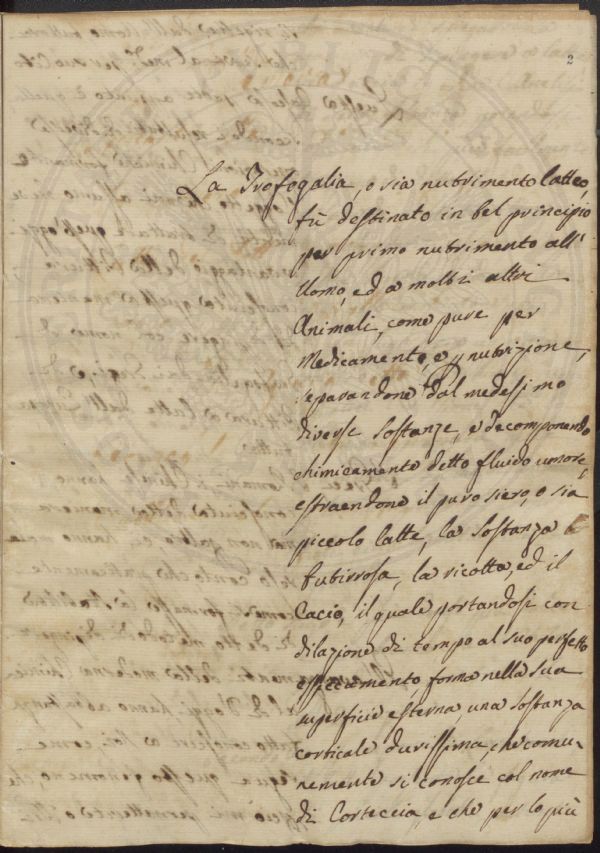 2
La Trofogalia, o sia nutrimento latteo,
fù destinato in bel principio
per primo nutrimento all'
Uomo, ed a molti altri
Animali, come pure per
Medicamento, e nutrizione,
separandone dal medesimo
diverse sostanze, e decomponendo
chimicamente detto fluido umore,
estraendone il puro siero, o sia
piccolo latte, la sostanza
butirrosa, la ricotta, ed il
Cacio, il quale portandosi con
dilazione di tempo al suo perfetto
essiccamento, forma nella sua
superficie esterna, una sostanza
corticale durissima, che comu-
nemente si conosce col nome
di Corteccia, e che per lo più